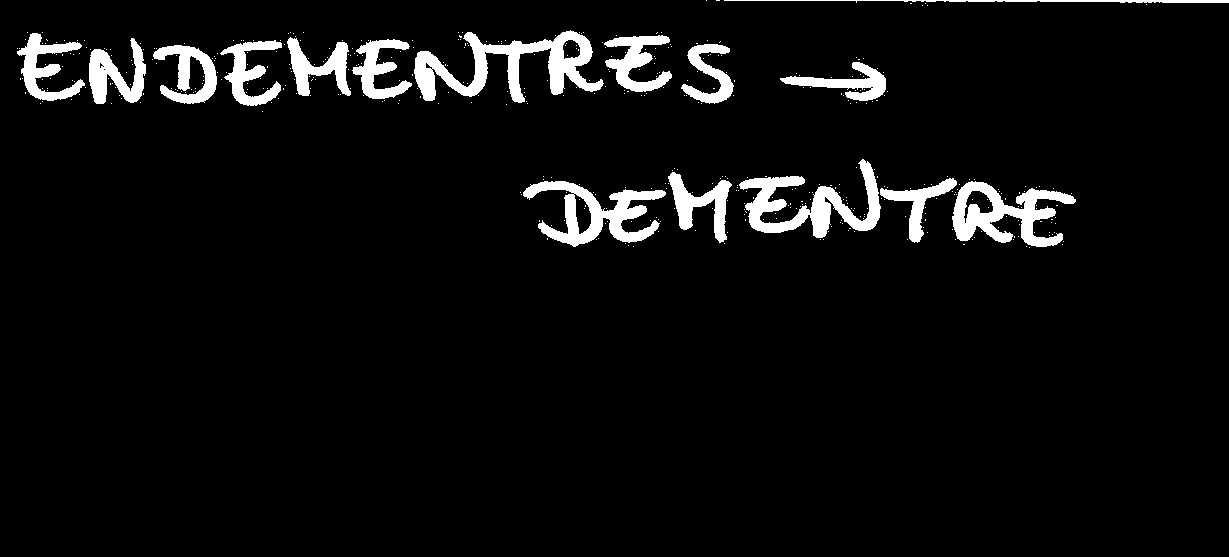 ENDEMENTRES →
DEMENTRE